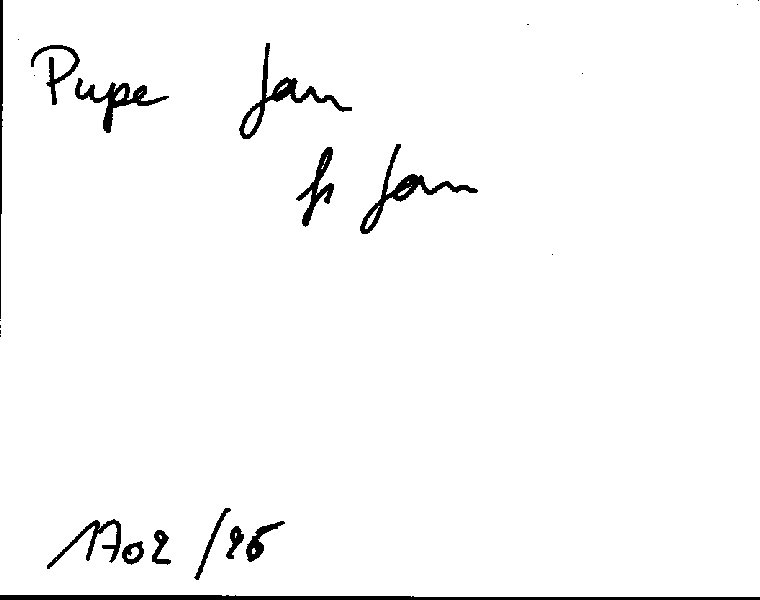 Pupe Jan
fs Jan
1702/26